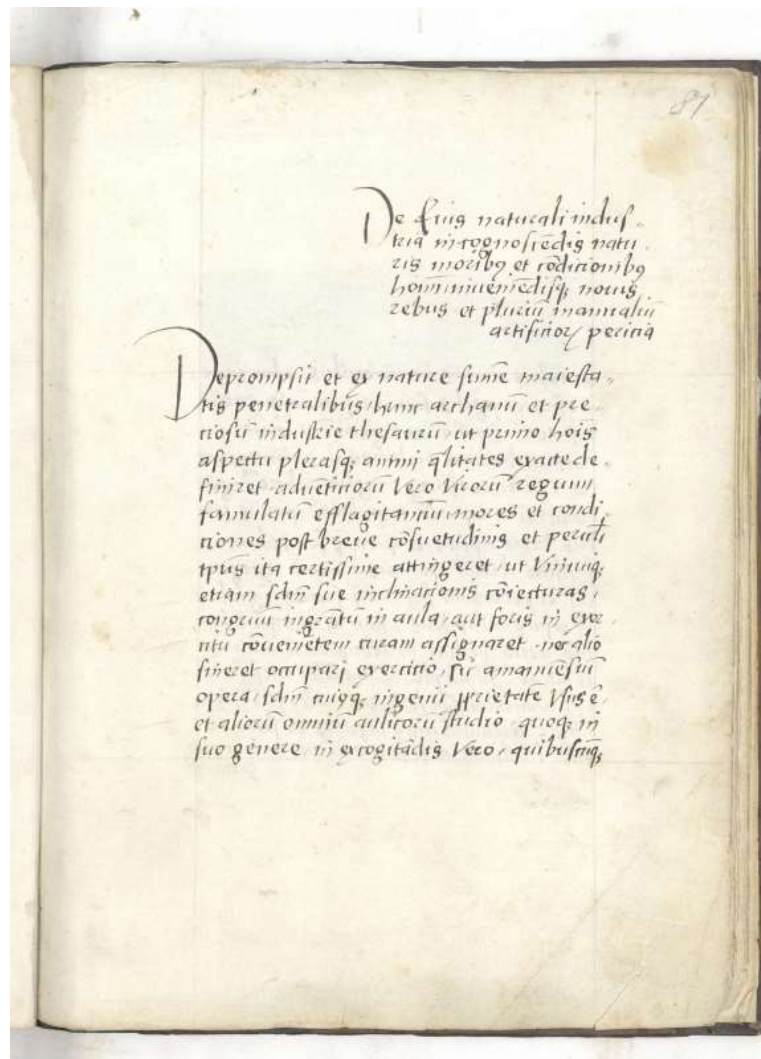 87
De Eius naturali indus-
tria in cognoscēdis natu-
ris moribꝰ et cōdicionibꝰ
homī inueniēdisqꝫ nouis
rebus et pluriū manualiū
artificiorꝝ pericia
Deprompsit et ex nature sūme maiesta-
tis penetralibus hunc archanū et pre-
ciosū industrie thesaurū ut primo hoīs
aspectu plerasqꝫ animi q̄litates exacte de-
finiret aduēticiorū Vero Virorū regum
famulatū efflagitantiū mores et condi-
ciones post breue cōsuetudinis et
tp̄us ita certissime attingeret ut Vnicuiqꝫ
etiam scd̄m sue inclinacionis cōiecturas
congruū in aula aut foris in exer-
citu cōuenietem curam assignaret nec alio
sineret occupari exercicio, sic amanuēsiū
opera scd̄m cuiusqꝫ ingenii ꝓprietatē Vsus ē
et aliorū omniū aulicorū studio quoqꝫ in
suo genere in excogitādis Vero quibuscūqꝫ